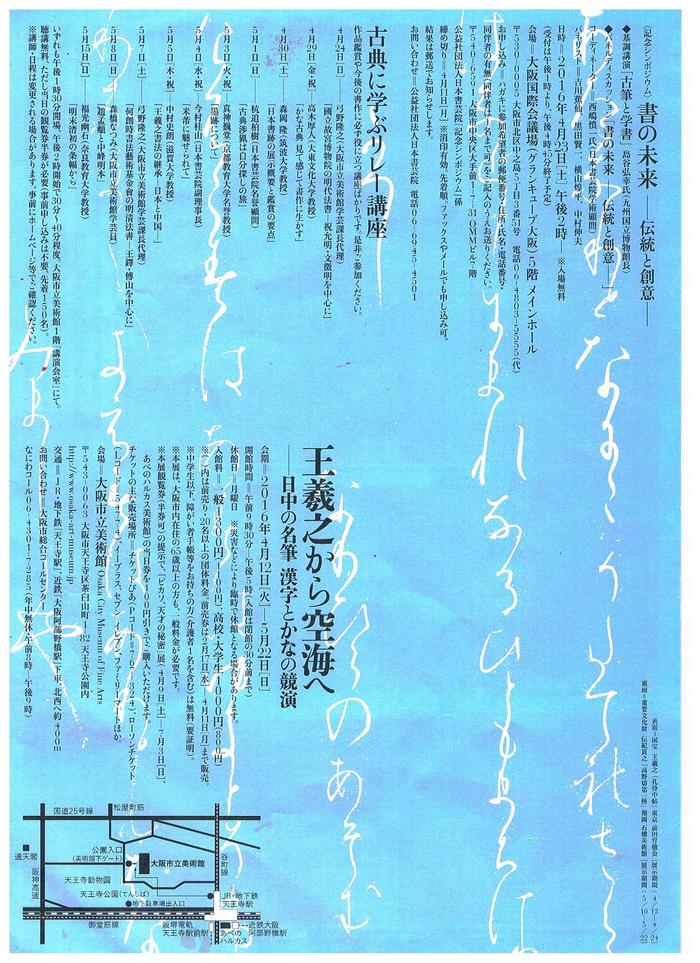 〈記念シンポジウム〉書の未来――伝統と創意――
◆基調講演「古筆と学書」島谷弘幸氏（九州国立博物館長）
◆パネルディスカッション「書の未来――伝統と創意――」
コーディネーター＝西嶋慎一氏（日本書芸院学術顧問）
パネリスト＝吉川蕉仙、黒田賢一、横山煌平、中村伸夫
日時＝2016年4月23日［土］午後2時～　※入場無料
（受付は午後1時より。午後4時45分終了予定）
会場＝大阪国際会議場（グランキューブ大阪）5階 メインホール
〒530-0005 大阪市北区中之島5丁目3番51号　電話06-4803-5555（代）
お申し込み＝ハガキに参加希望者の郵便番号・住所・氏名・電話番号・
同伴者の有無（同伴者は1名まで可）をご記入のうえお送りください。
〒540-0591 大阪市中央区大手前1-7-31 OMMビル7階
公益社団法人日本書芸院「記念シンポジウム」係
締め切り＝4月1日［月］　※消印有効　先着順。ファックスやメールでも申し込み可。
結果は郵送でお知らせします。
お問い合わせ＝公益社団法人日本書芸院　電話06-6945-4501
古典に学ぶリレー講座
作品鑑賞や今後の書作に必ず役に立つ講座ばかりです。是非ご参加ください。
4月24日［日］――弓野隆之（大阪市立美術館学芸課長代理）
「國立故宮博物院の明代法書――祝允明・文徴明を中心に」
4月29日［金・祝］――高木厚人（大東文化大学教授）
「かな古典――見て感じて書作に生かす」
4月30日［土］――森岡 隆（筑波大学教授）
「日本書跡の展示概要と鑑賞の要点」
5月1日［日］――杭迫柏樹（日本書芸院名誉顧問）
「古典渉猟は自分探しの旅」
5月3日［火・祝］――真神巍堂（京都教育大学名誉教授）
「墨跡について」
5月4日［水・祝］――今村桂山（日本書芸院副理事長）
「米芾に魅せられて」
5月5日［木・祝］――中村史朗（滋賀大学教授）
「王羲之書法の継承――日本と中国―」
5月7日［土］――弓野隆之（大阪市立美術館学芸課長代理）
「何創時書法藝術基金會の明清法書――王鐸・傅山を中心に」
5月8日［日］――森橋なつみ（大阪市立美術館学芸員）
「趙孟頫と中峰明本」
5月15日［日］――福光幽石（奈良教育大学教授）
「明末清初の条幅から」
いずれも午後1時30分開場、午後2時開始で30分～40分程度。大阪市立美術館1階「講演会室」にて。
聴講無料、ただし当日の観覧券半券が必要（事前申し込みは不要、先着150名）。
※講師・日程は変更される場合があります。事前にホームページ等でご確認ください。
王羲之から空海へ
――日中の名筆 漢字とかなの競演
会期＝2016年4月12日［火］～5月22日［日］
開館時間＝午前9時30分～午後5時（入館は閉館の30分前まで）
休館日＝月曜日　※災害などにより臨時で休館となる場合があります。
入館料＝一般1300円（1100円）、高校・大学生1000円（800円）
※（　）内は前売り・20名以上の団体料金。前売券は2月17日［水］～4月11日［月］まで販売。
※中学生以下、障がい者手帳等をお持ちの方（介護者1名を含む）は無料（要証明）。
※本展は、大阪市内在住の65歳以上の方も、一般料金が必要です。
※本展観覧券（半券可）の提示で、「ピカソ、天才の秘密」展（4月9日［土］～7月3日［日］、
あべのハルカス美術館）の当日券を100円引きでご購入いただけます。
会場＝大阪市立美術館 Osaka City Museum of Fine Arts
〒543-0063 大阪市天王寺区茶臼山町1-82 天王寺公園内
http://www.osaka-art-museum.jp
交通＝JR・地下鉄「天王寺駅」、近鉄「大阪阿部野橋駅」下車、北西へ約400m
お問い合わせ＝大阪市総合コールセンター
なにわコール06-4301-7285（年中無休・午前8時～午後9時）
国道25号線
松屋町筋
通天閣
公園入口
（美術館下ゲート）
大阪市立美術館
谷町線
阪神高速
天王寺動物園
天王寺公園（てんしば）
地下駐車場出入口
JR・地下鉄
天王寺駅
御堂筋線
阪堺電軌
天王寺駅前駅
あべの
ハルカス
近鉄大阪
阿部野橋駅